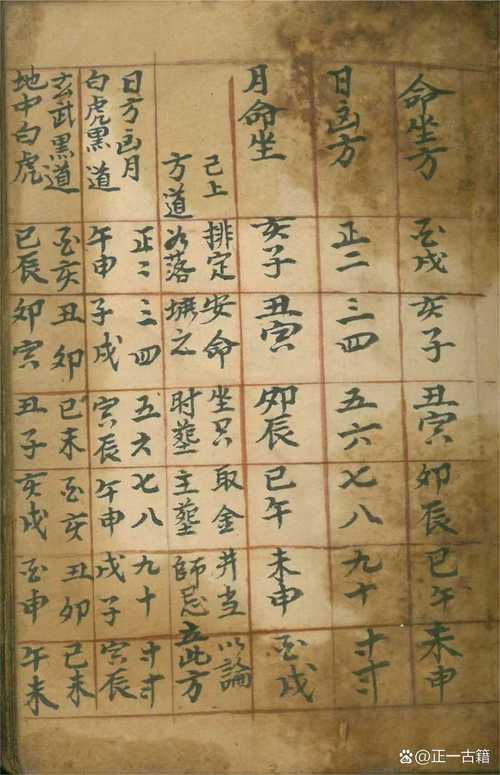 命坐方 酉戌 亥子 丑寅 卯辰 巳午 未申
日方 正二 三四 五六 七八 九十 十一十二
月命坐 亥子 丑寅 卯辰 巳午 未申 酉戌
己上排定安命坐只取金井当以論
方道落壙之时塟主塟師忌立此方
日方月 正二 三四 五六 七八 九十 十一十二
白虎黑道 午申 子戌 寅辰 午申 戌子 寅辰
玄武黑道 酉亥 丑卯 巳未 酉亥 丑卯 巳未
地中白虎 巳辰 卯寅 丑子 亥戌 酉申 午未
@正一古籍